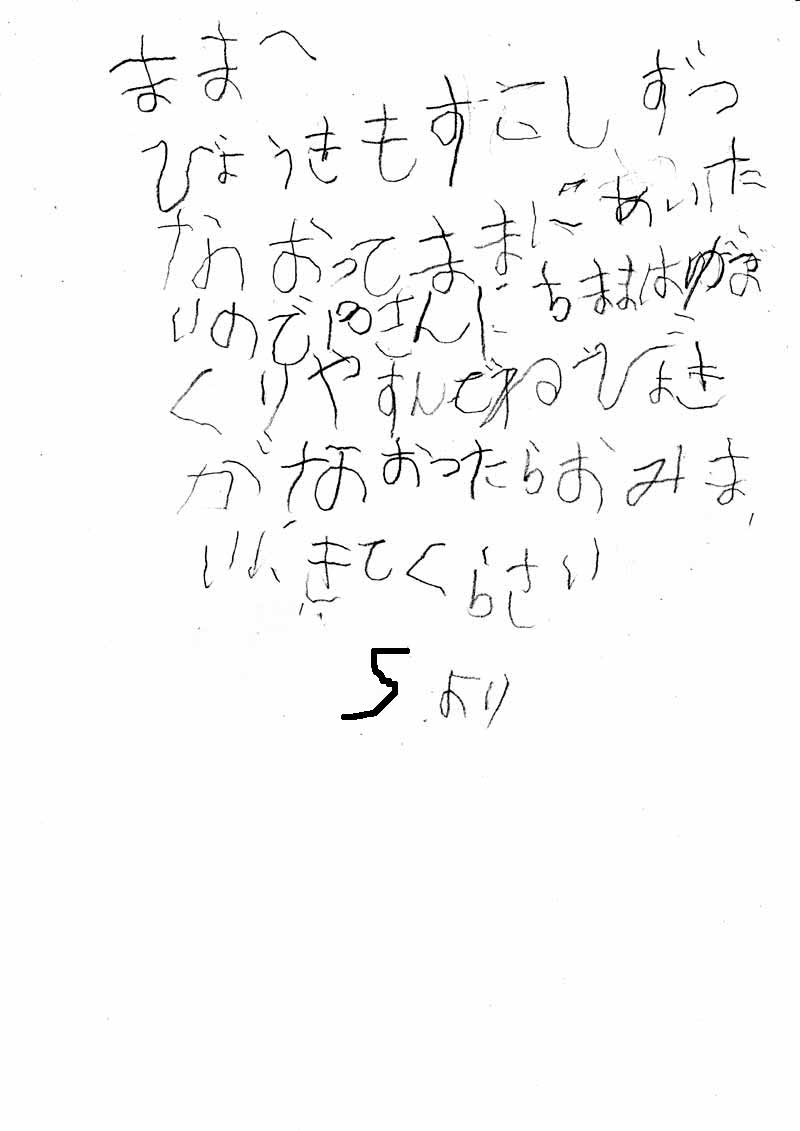 ままへ
びょうきもすこしずつ
なおってままにあいた
いのでがさんに ちままはゆがま
くりやすんでねびょき
がなおったらおみま
いに、きてくらさい
5 より